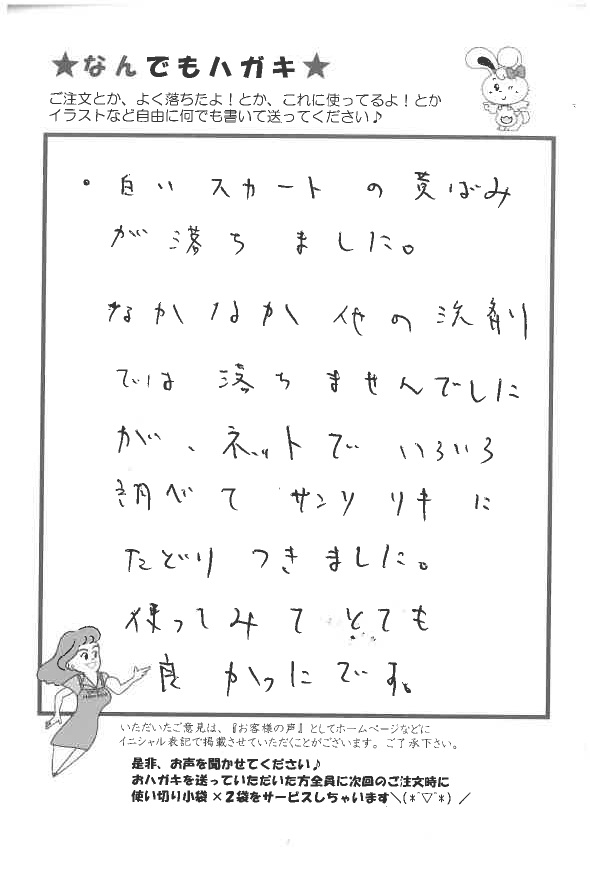 ★なんでもハガキ★
ご注文とか、よく落ちたよ！とか、これに使ってるよ！とか
イラストなど自由に何でも書いて送ってください♪
・白い スカート の 黄ばみ
が 落ち ました。
なか なか 他の 洗剤
では 落ちませんでした
が、ネットで いろいろ
調べて サンソ リキ に
たどり つきました。
使って みて とても
良 かったです。
いただいたご意見は、『お客様の声』としてホームページなどに
イニシャル表記で掲載させていただくことがございます。ご了承下さい。
是非、お声を聞かせてください♪
おハガキを送っていただいた方全員に次回のご注文時に
使い切り小袋×2袋をサービスしちゃいます＼(*^▽^*)／